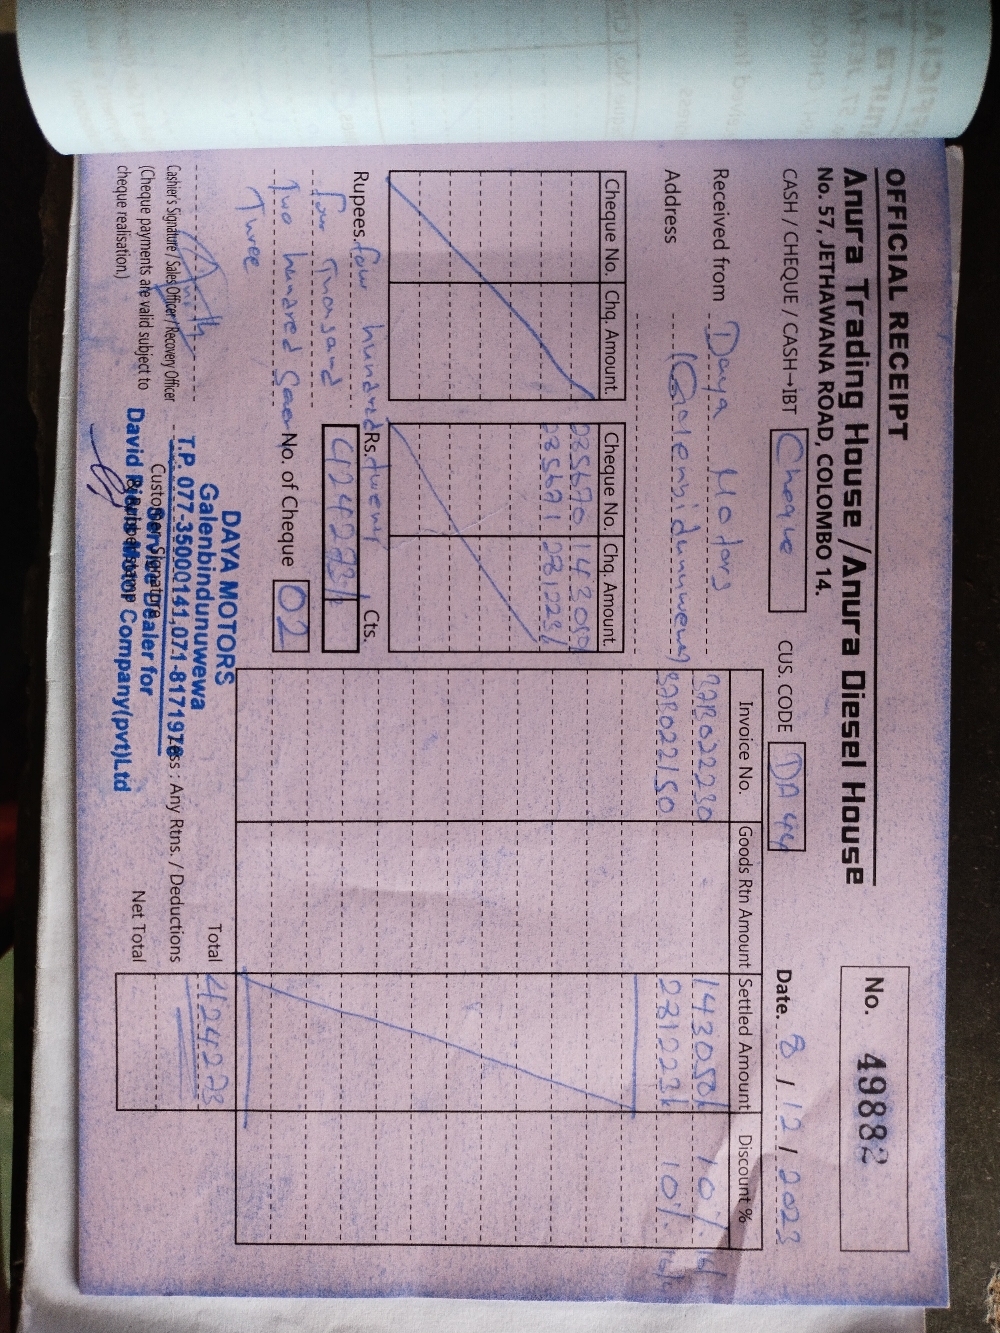 OFFICIAL RECEIPT
Anura Trading House / Anura Diesel House
No. 57, JETHAWANA ROAD, COLOMBO 14.
No. 49882
CASH / CHEQUE / CASH→IBT Cheque
CUS. CODE DA 44
Date. 8 / 12 / 2023
Received from Daya Motors
Address (Galenbidunuwewa)
Cheque No. Chq. Amount. Cheque No. Chq. Amount.
235670 143050/
235671 281223/
Invoice No. Goods Rtn Amount Settled Amount Discount %
022230 143050/ 10%
022150 281223/ 10%
Rupees four hundred twenty
four Thousand
Two hundred
Three
Rs. Cts.
424273/
No. of Cheque 02
Total 424273
Less : Any Rtns. / Deductions
Net Total
Cashier's Signature / Sales Officer / Recovery Officer
(Cheque payments are valid subject to
cheque realisation.)
Customer Signature
DAYA MOTORS
Galenbindunuwewa
T.P. 077-35000141,071-8171976
Service Dealer for
David Pieris Motor Company(pvt)Ltd